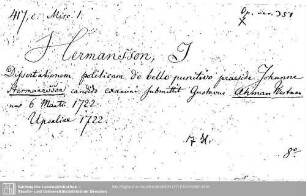 417, c. Misc. 1.
Op. inv. 351
X
Hermansson, J
Dissertationem politicam de bello punitivo praeside Johanne
Hermansson candido examini submittit Gustavus Ahman
ad 6 Martii 1722
Upsaliae 1722.
17 Bl.
8°
Sächsische Landesbibliothek -
Staats- und Universitätsbibliothek Dresden